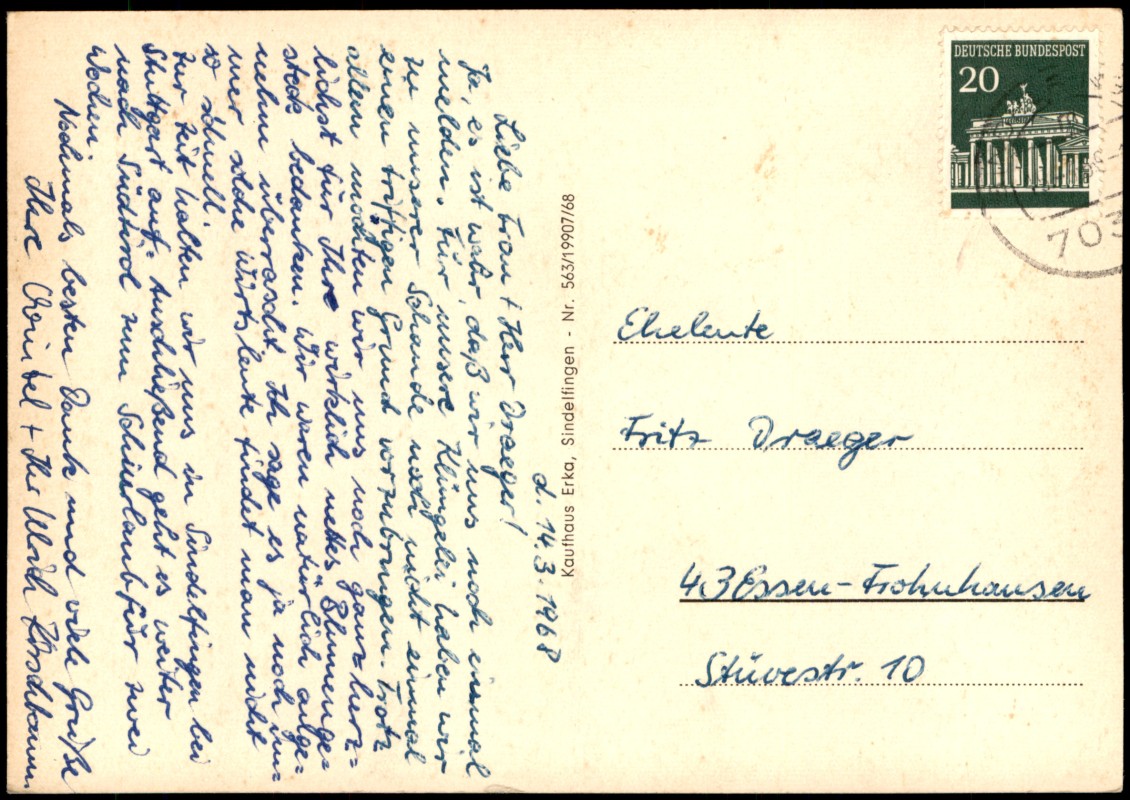 d. 14.3.1968
Liebe Frau + Herr Draeger!
Ja, es ist wahr, daß wir uns noch einmal
melden. Für unsere Klingelei haben wir
zu unserer Schande noch nicht einmal
einen triftigen Grund vorzubringen. Trotz
allem möchten wir uns noch ganz herz-
lichst für Ihre wirklich nettes Blumenge-
steck bedanken. Wir waren natürlich ange-
nehm überrascht. Ich sage es ja noch im-
mer solche Wirtsleute findet man nicht
so schnell.
Zur Zeit halten wir uns in Sindelfingen bei
Stuttgart auf. Anschließend geht es weiter
nach Südtirol zum Schiurlaub für zwei
Wochen.
Nochmals besten Dank und viele Grüße
Ihre Christel + Ihr Ulrich Kirschbaum
Kaufhaus Erka, Sindelfingen - Nr. 563/19907/68
DEUTSCHE BUNDESPOST
20
703
Eheleute
Fritz Draeger
43 Essen-Frohnhausen
Stüvestr. 10